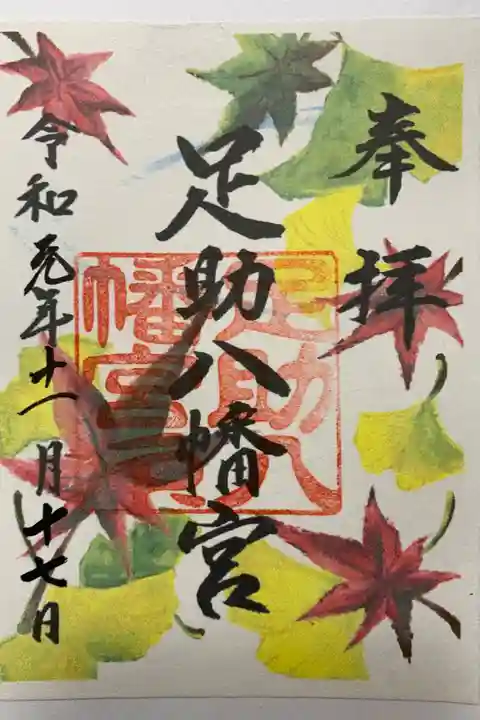 奉拝
足助八幡宮
足助八幡宮
令和元年十一月十七日